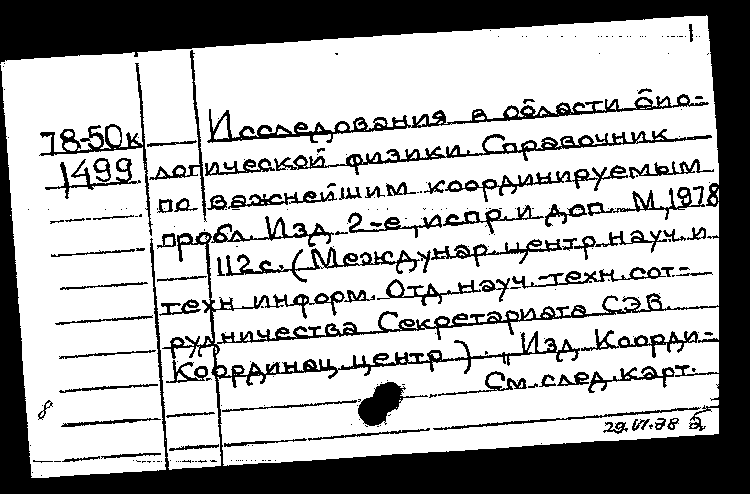 1
78-50к Исследования в области био-
1499 логической физики. Справочник
по важнейшим координируемым
пробл. Изд. 2-е, испр. и доп. М, 1978
112 с. (Междунар. центр науч. и
техн информ. Отд. науч.-техн. сот-
рудничества Секретариата СЭВ.
Координац. центр). „Изд. Коорди-
См. след. карт.
8